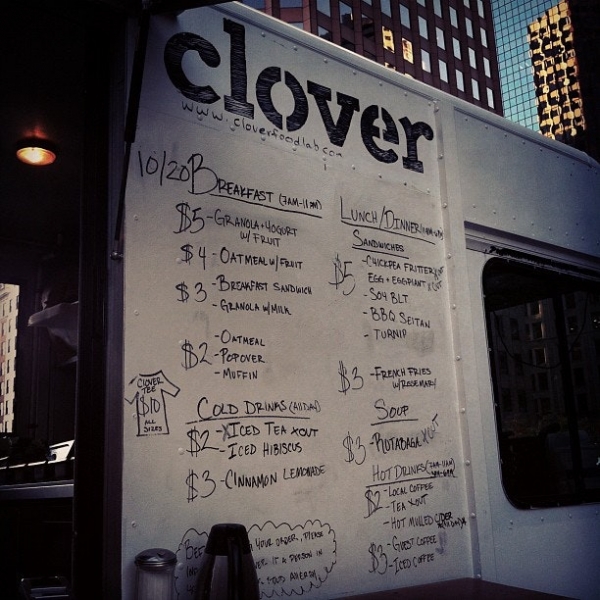 clover
www.cloverfoodlab.com
10/20
BREAKFAST (7AM-11AM)
$5 - GRANOLA + YOGURT
W/ FRUIT
$4 - OATMEAL W/ FRUIT
$3 - BREAKFAST SANDWICH
- GRANOLA W/ MILK
- OATMEAL
$2 - POPOVER
- MUFFIN
CLOVER
TEE
$10
ALL
SIZES
COLD DRINKS (ALL DAY)
$2 - ICED TEA XOUT
- ICED HIBISCUS
$3 - CINNAMON LEMONADE
LUNCH/DINNER
SANDWICHES
$5 - CHICKPEA FRITTER
EGG + EGGPLANT
- SOY BLT
- BBQ SEITAN
- TURNIP
$3 - FRENCH FRIES
W/ ROSEMARY
SOUP
$3 - RUTABAGA XOUT
HOT DRINKS (7AM-11AM
$2 - LOCAL COFFEE
- TEA XOUT
- HOT MULLED CIDER
$3 - GUEST COFFEE
- ICED COFFEE
YOUR ORDER, PLEASE
IF A PERSON IN